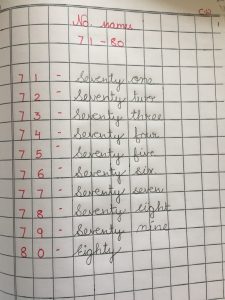 C.W
No. names
71 - 80
71 - Seventy one
72 - Seventy two
73 - Seventy three
74 - Seventy four
75 - Seventy five
76 - Seventy six
77 - Seventy seven
78 - Seventy eight
79 - Seventy nine
80 - Eighty